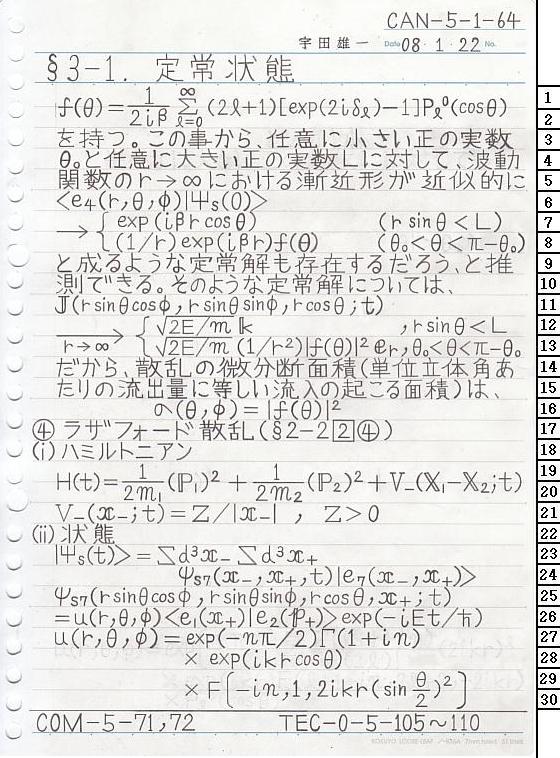 CAN-5-1-64
宇田雄一 Date 08・1・22 No.
§3-1. 定常状態
f(θ)=1/(2iβ) Σ_{ℓ=0}^{∞} (2ℓ+1)[exp(2iδ_ℓ)-1]P_ℓ^0(cosθ)
を持つ。この事から、任意に小さい正の実数
θ₀と任意に大きい正の実数Lに対して、波動
関数のr→∞における漸近形が近似的に
<e₄(r,θ,φ)|Ψs(0)>
→{ exp(iβr cosθ) (r sinθ<L)
(1/r)exp(iβr)f(θ) (θ₀<θ<π-θ₀)
と成るような定常解も存在するだろう、と推
測できる。そのような定常解については、
J(r sinθcosφ, r sinθsinφ, rcosθ;t)
→ r→∞ { √2E/m k , r sinθ<L
√2E/m (1/r²)|f(θ)|² er, θ₀<θ<π-θ₀
だから、散乱の微分断面積(単位立体角あ
たりの流出量に等しい流入の起こる面積)は、
σ(θ,φ)=|f(θ)|²
④ ラザフォード散乱(§2-2②④)
(i)ハミルトニアン
H(t)=1/(2m₁)(P₁)²+1/(2m₂)(P₂)²+V₋(X₁-X₂;t)
V₋(x₋;t)=Z/|x₋| , Z>0
(ii)状態
|Ψs(t)>=Σd³x₋Σd³x₊
Ψs7(x₋,x₊,t)|e₇(x₋,x₊)>
Ψs7(rsinθcosφ, rsinθsinφ, rcosθ, x₊;t)
=u(r,θ,φ)<e₁(x₊)|e₂(p₊)>exp(-iEt/ħ)
u(r,θ,φ)=exp(-nπ/2)Γ(1+in)
×exp(ikr cosθ)
×F[-in,1,2ikr(sin θ/2)²]
COM-5-71,72 TEC-0-5-105~110
1
2
3
4
5
6
7
8
9
10
11
12
13
14
15
16
17
18
19
20
21
22
23
24
25
26
27
28
29
30